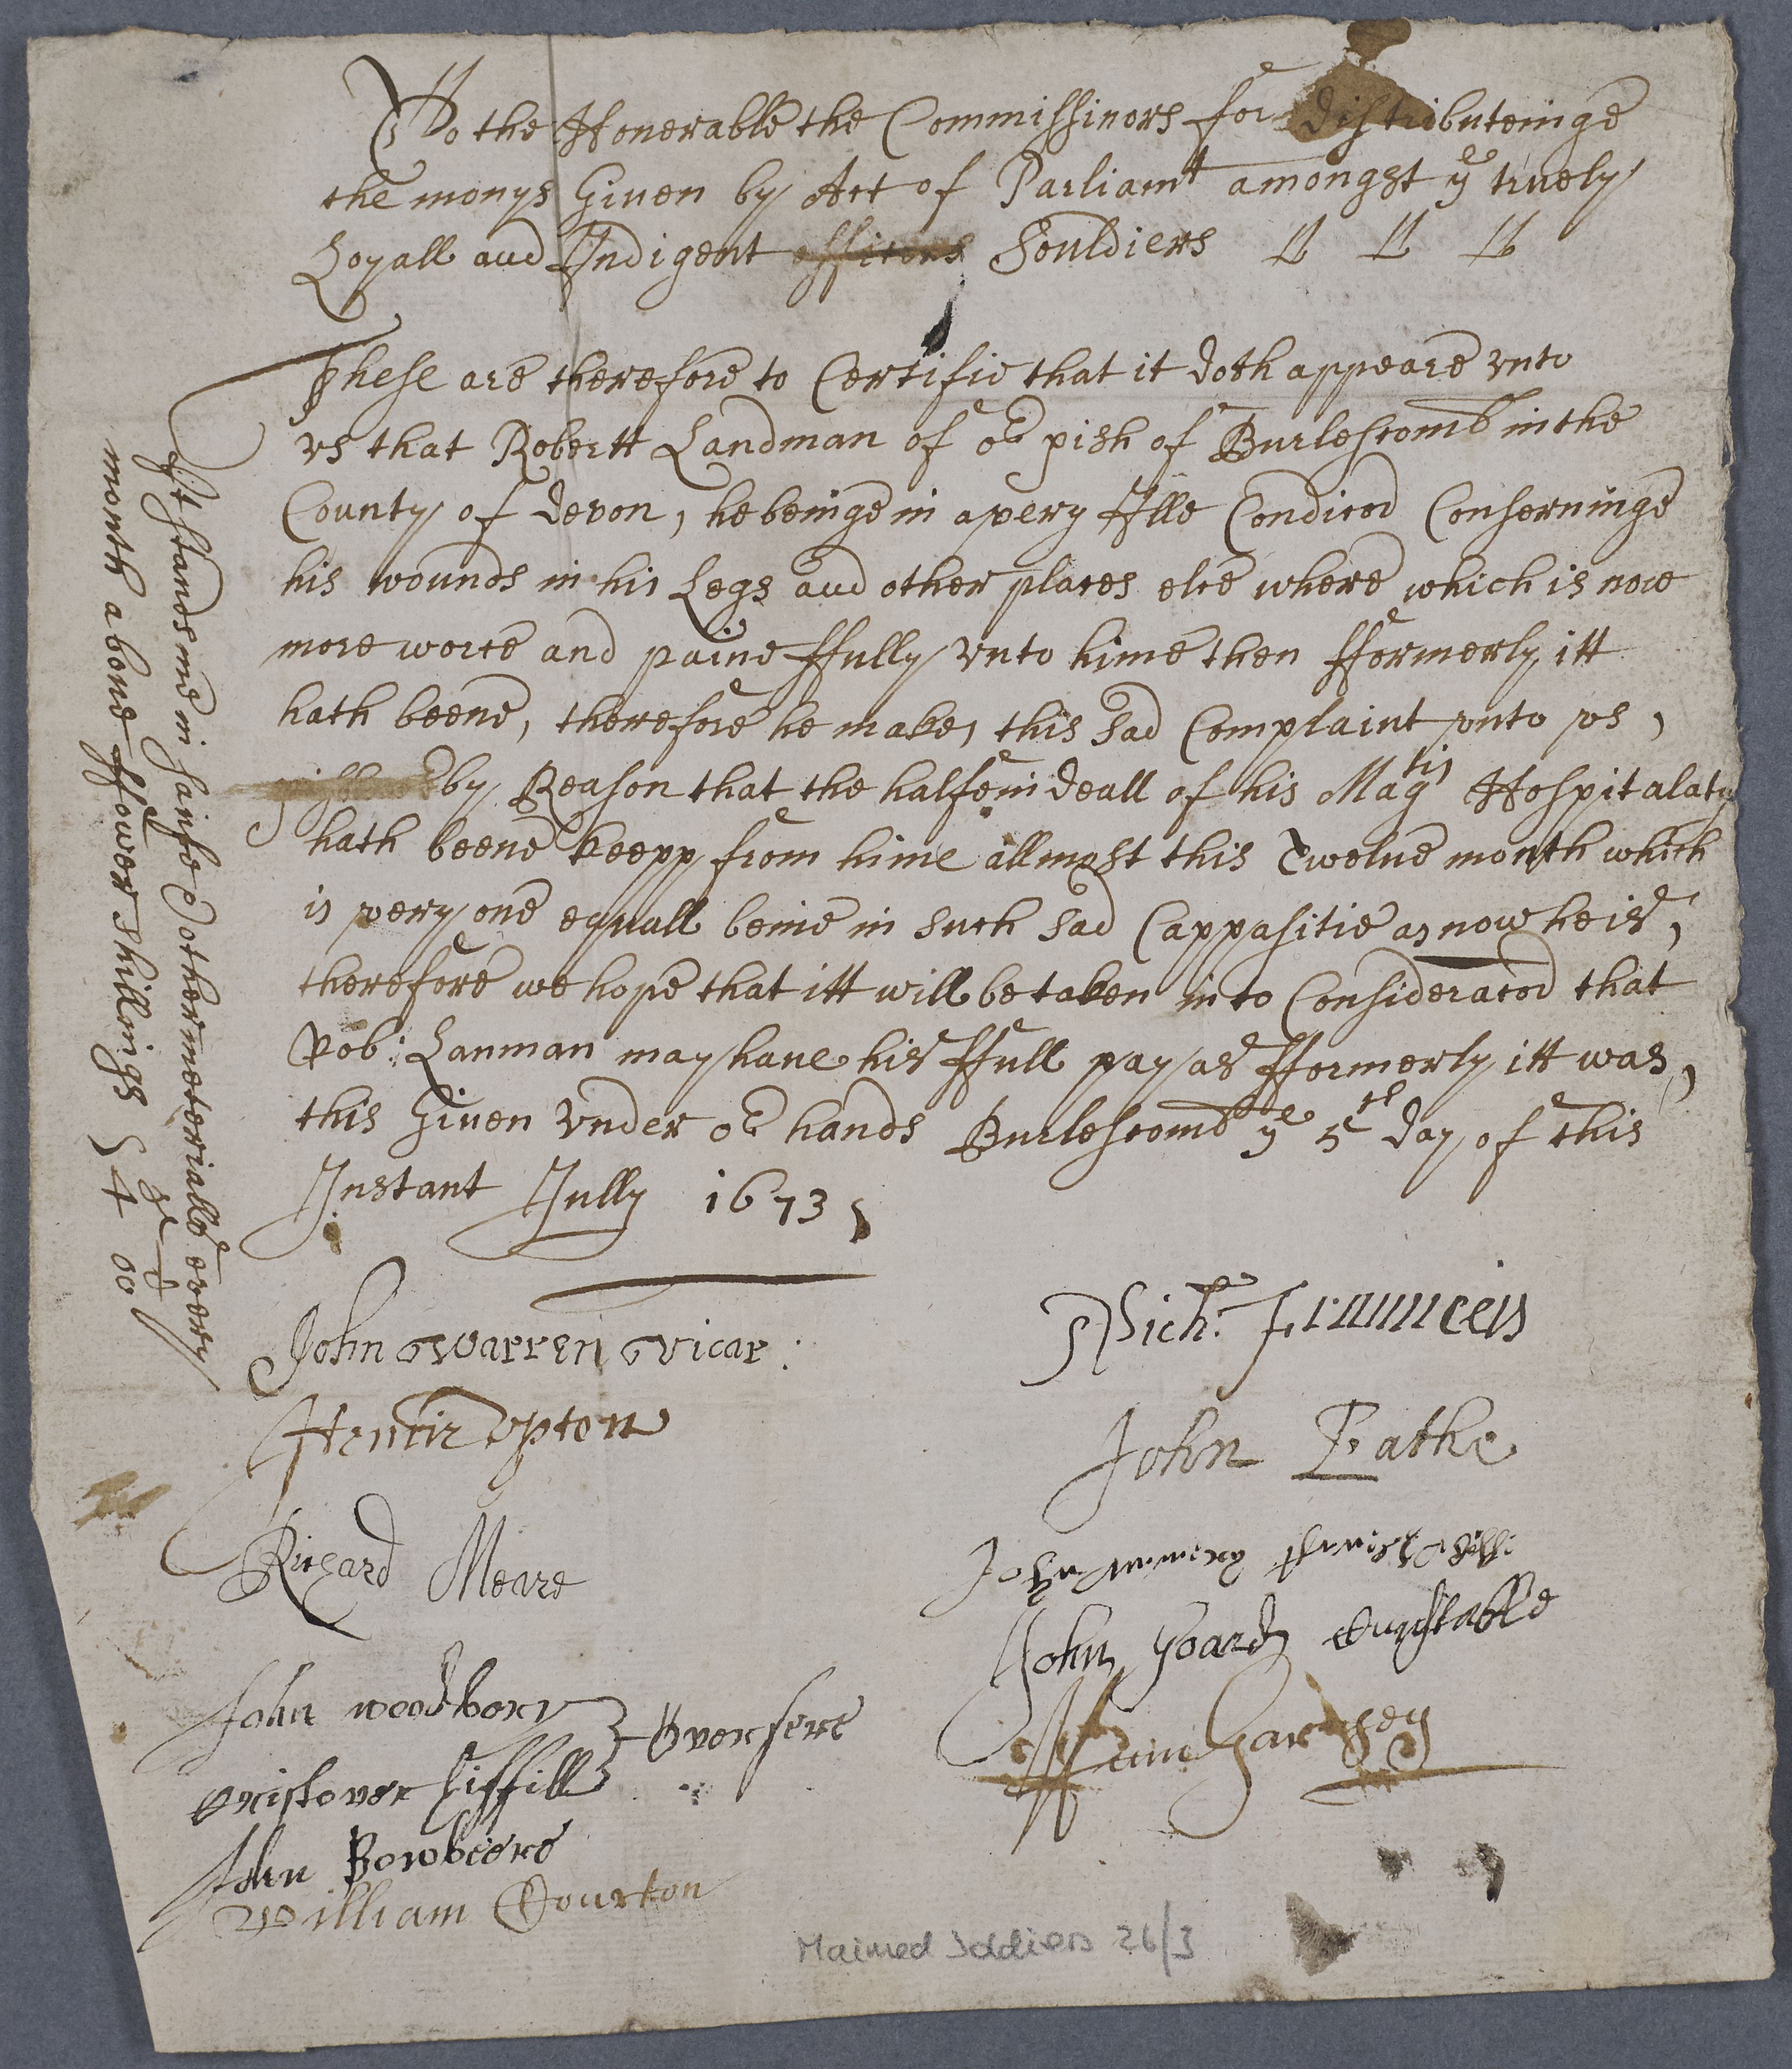 To the Honerable the Commissinors for distributeinge
the monys Given by Act of Parliamt amongst ye truely
Loyall and Indigent officers Souldiers
These are therefore to Certifie that it doth appeare vnto
vs that Robertt Landman of or pish of Burlescomb in the
County of devon, he beinge in a very Ille Condicon Conserninge
his wounds in his Legs and other places elce where which is now
more worce and paine ffully vnto hime then fformerly itt
hath beene, therefore he makes this sad Complaint vnto vs,
by Reason that the halfein deall of his Magtis Hospitalaty
hath beene keepp from hime allmost this Twelue month which
is very one equall beine in such sad Cappasitie as now he is,
therefore we hope that itt will be taken into Consideracon that
Rob: Lanman may haue his ffull pay as fformerly itt was,
this Given Vnder or hands Burlescomb ye 5th day of this
Instant Jully 1673
It stands me in sailfe & other meterialls every
month aboue ffower shillings
s d
4 00
John Warren Vicar:
Henrie Vpton
Richard Meare
John woodbery
Cristover Liffill
Oversere
John Bowbeere
William Courton
Nich: Fraunceis
John Bathe
John
John Goard Cunstable
Maimed Soldiers 26/3